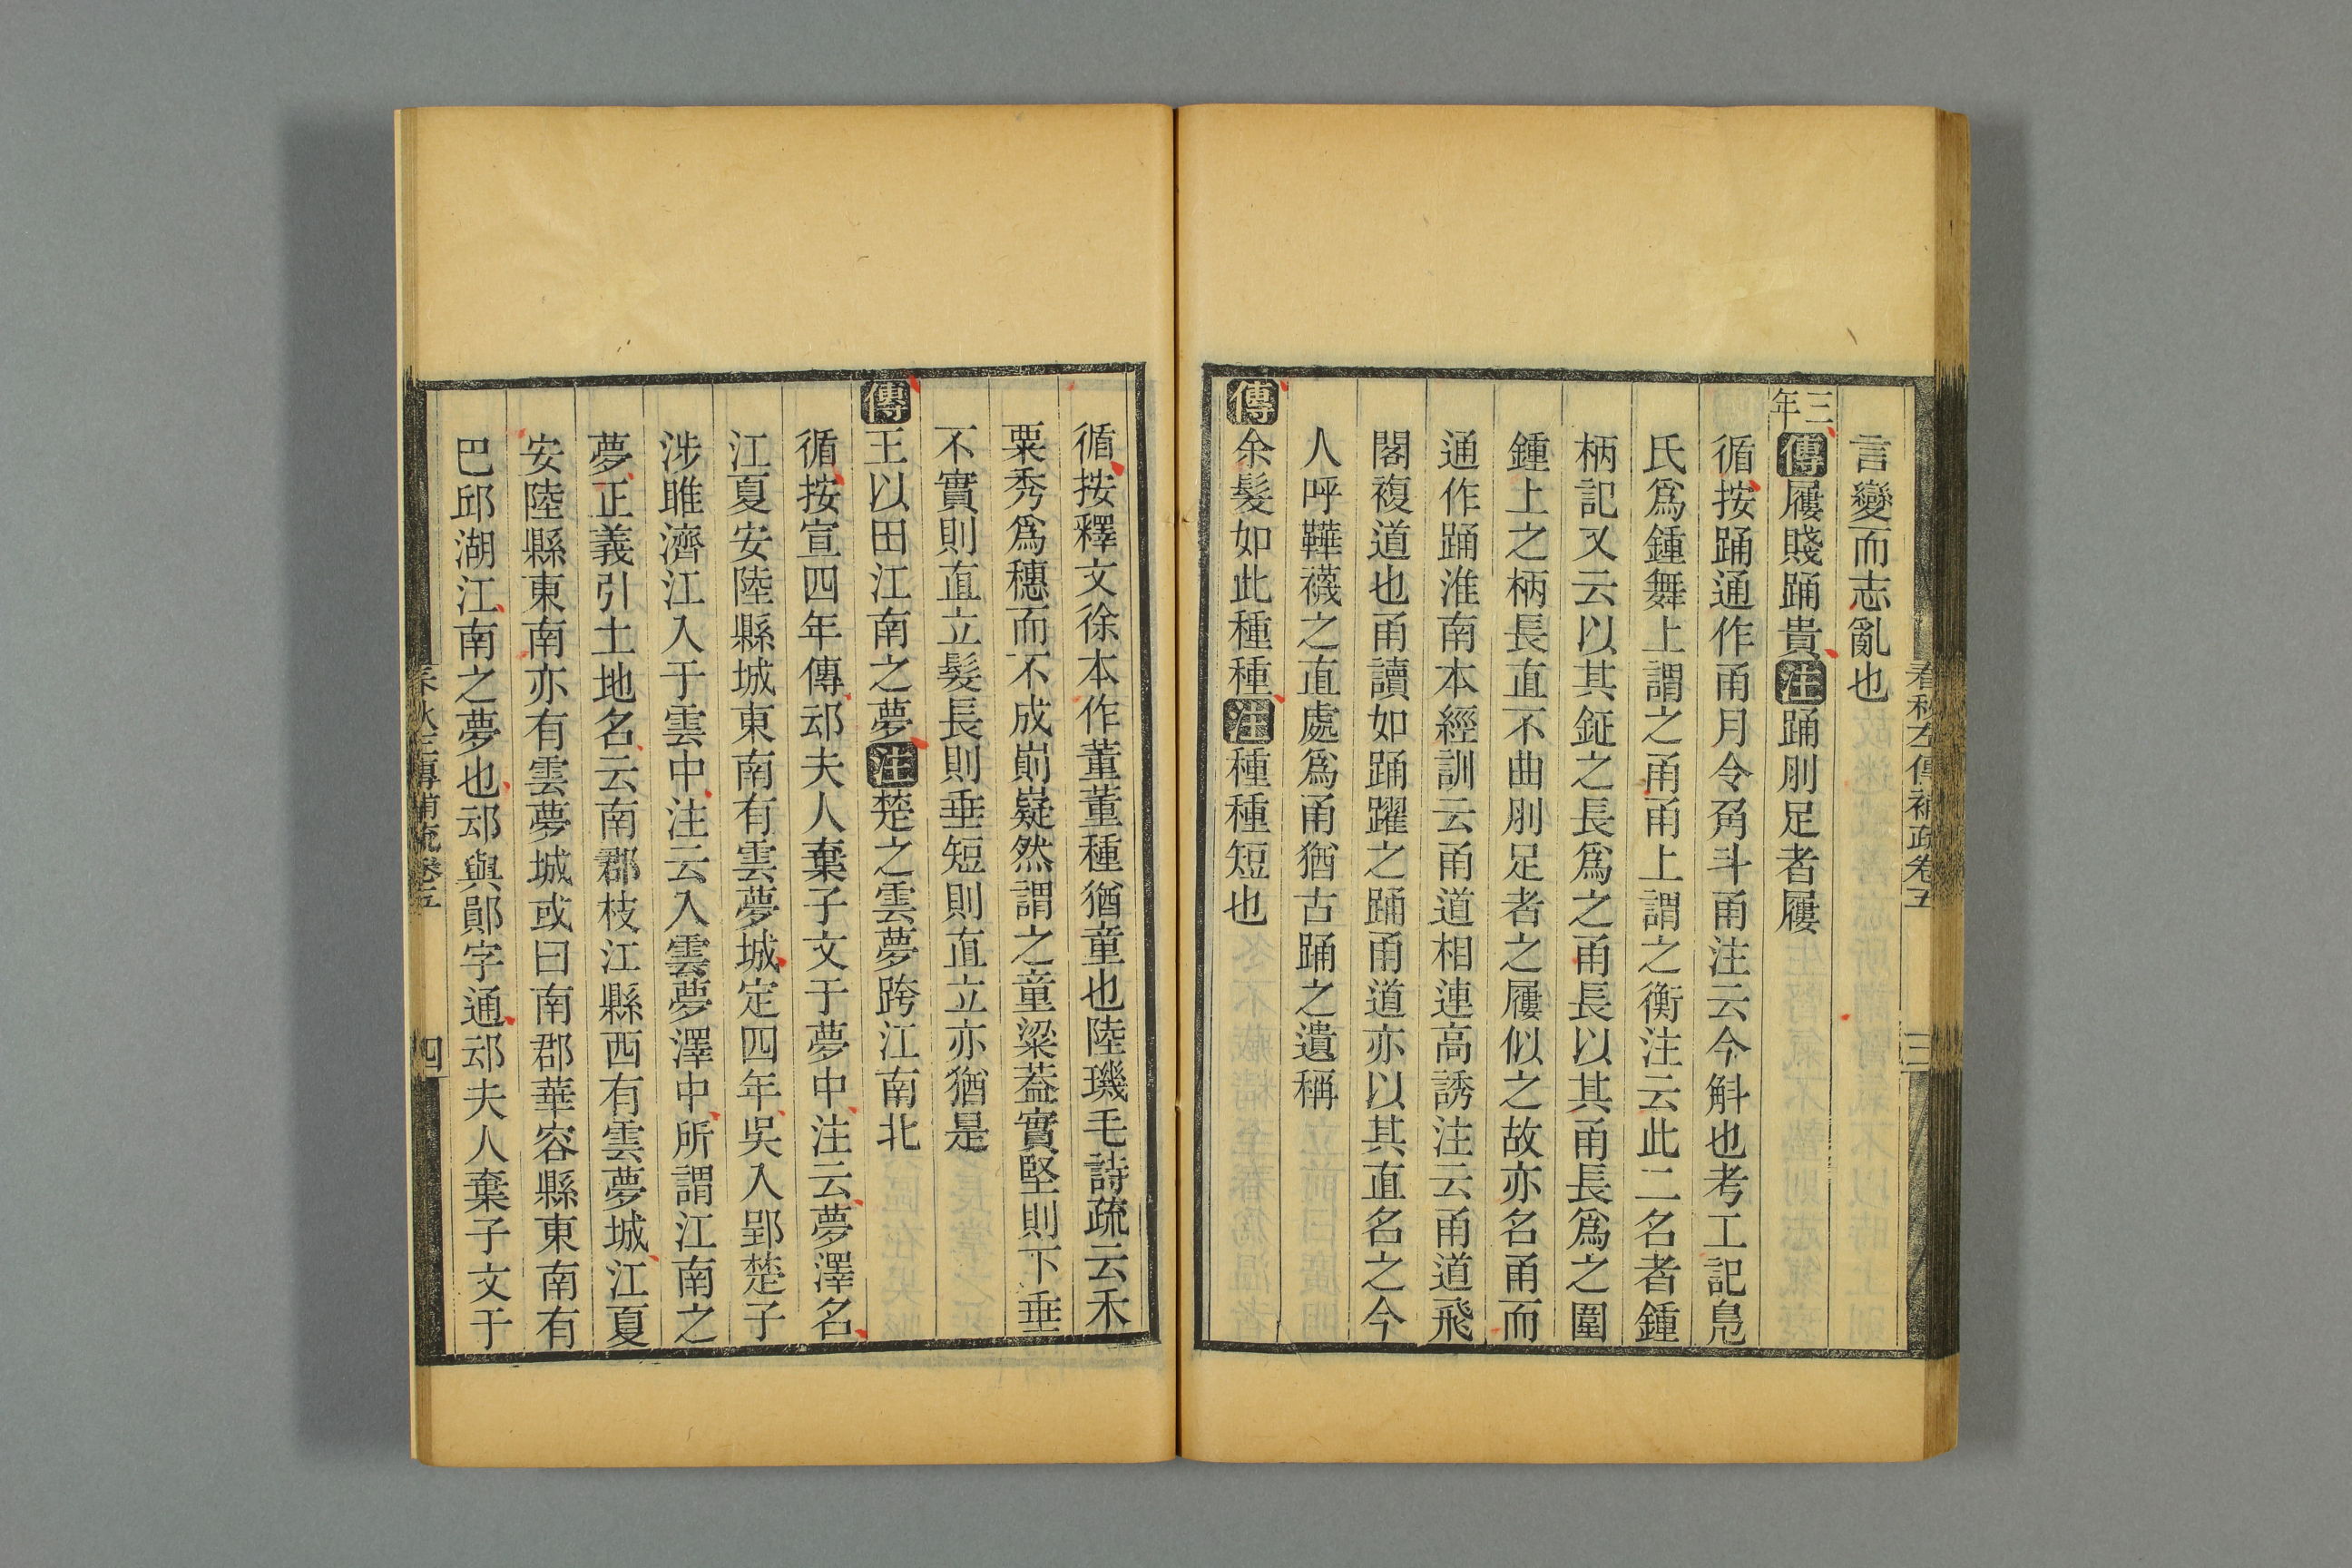 春秋左傳補疏卷五
三
言變而志亂也
三年傳屨賤踊貴注踊刖足者屨
循按踊通作甬月令角斗甬注云今斛也考工記鳧
氏爲鍾舞上謂之甬甬上謂之衡注云此二名者鍾
柄記又云以其鉦之長爲之甬長以其甬長爲之圍
鍾上之柄長直不曲刖足者之屨似之故亦名甬而
通作踊淮南本經訓云甬道相連高誘注云甬道飛
閣複道也甬讀如踊躍之踊甬道亦以其直名之今
人呼鞾襪之直處爲甬猶古踊之遺稱
傳余髮如此種種注種種短也
循按釋文徐本作董董種猶童也陸璣毛詩疏云禾
粟秀爲穗而不成崱嶷然謂之童粱葢實堅則下垂
不實則直立髮長則垂短則直立亦猶是
傳王以田江南之夢注楚之雲夢跨江南北
循按宣四年傳䢵夫人棄子文于夢中注云夢澤名
江夏安陸縣城東南有雲夢城定四年吳入郢楚子
涉雎濟江入于雲中注云入雲夢澤中所謂江南之
夢正義引土地名云南郡枝江縣西有雲夢城江夏
安陸縣東南亦有雲夢城或曰南郡華容縣東南有
巴邱湖江南之夢也䢵與鄖字通䢵夫人棄子文于
春秋左傳補疏卷五
四